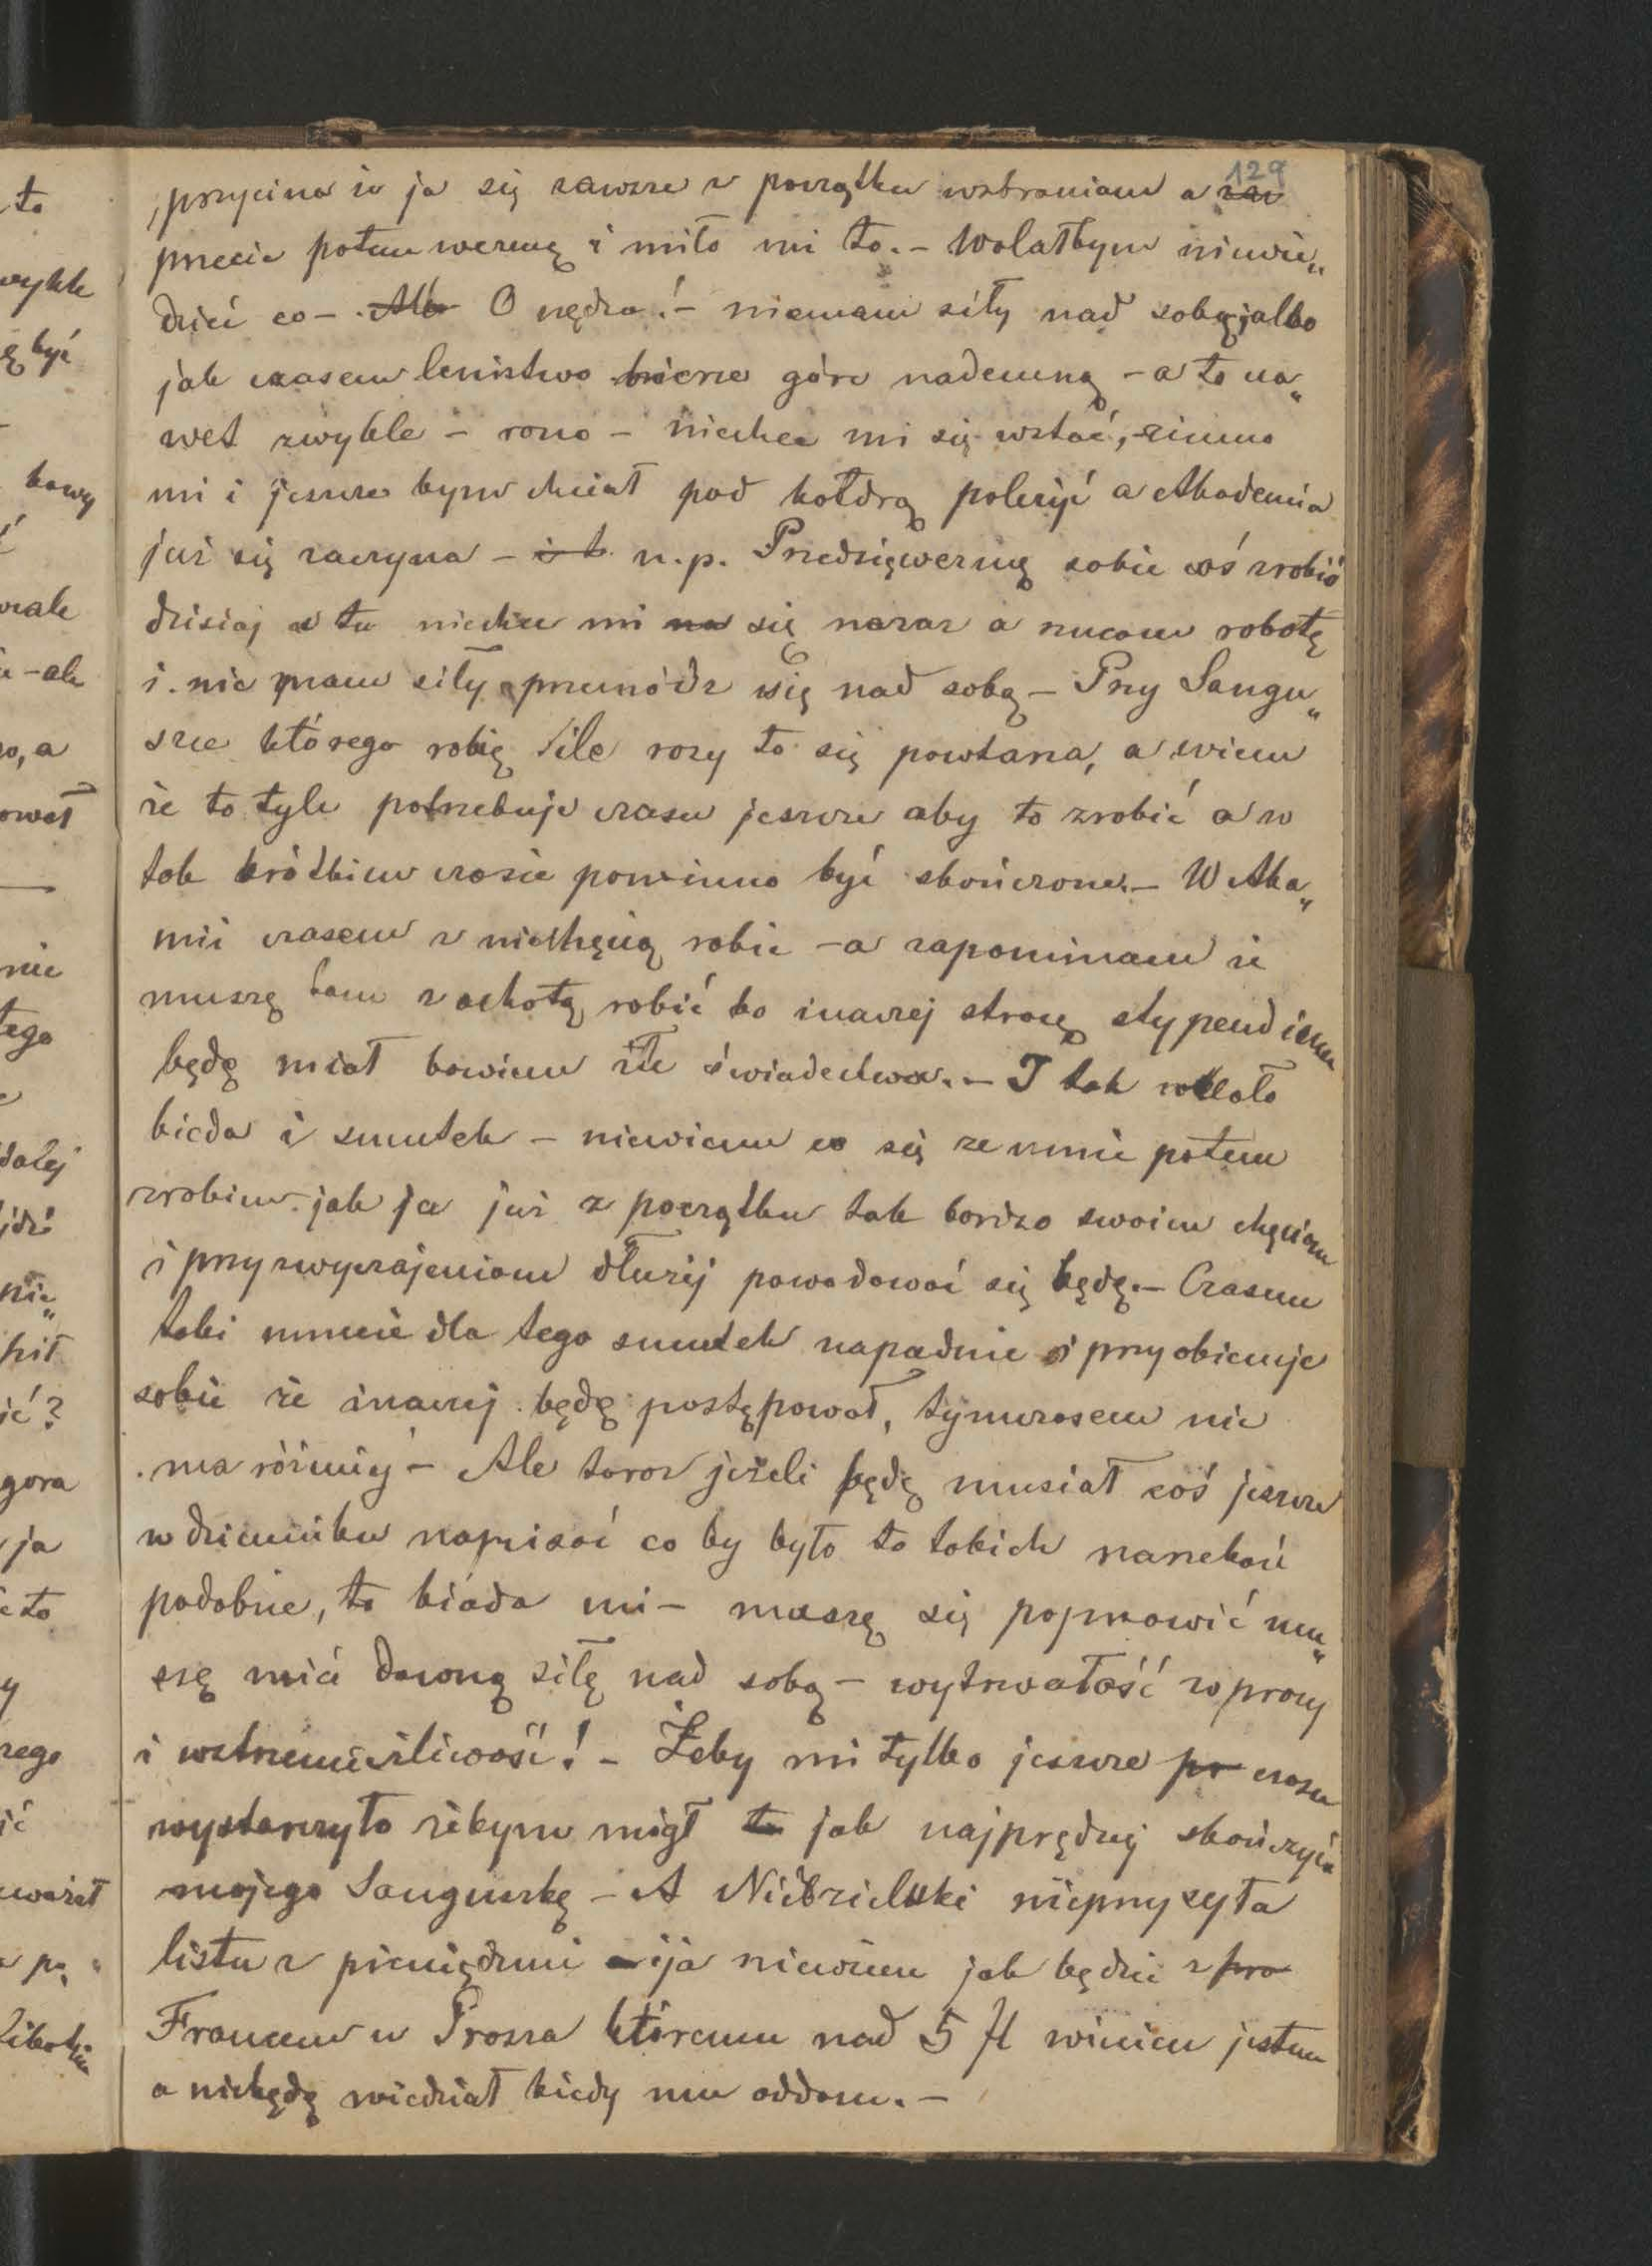 129
przycina że ja się zawsze z początku wzbraniam a zaw
przecie potem wezmę i miło mi to. – Wolałbym niewie„
dzieć co – Alb O nędza! – niemam siły nad sobą jak bo
jak czasem lenistwo bierze górę nademną – a to na„
wet zwykle – rano – niechce mi się wstać, zimno
mi i jeszcze bym chciał pod kołdrą poleżyć a Akademia
już się zaczyna – i t. n.p. Przedsięwezmę sobie coś zrobić
dzisiaj a tu niechce mi na się naraz a rzucam robotę
i nie mam siły przemódz się nad sobą – Przy Sangu„
szce którego robię ile razy to się powtarza, a wiem
że to tyle potrzebuje czasu jeszcze aby to zrobić a w
tak krótkim czasie powinno być skończone. – W Aka„
mii czasem z niechęcią robie – a zapominam że
muszę tam z ochotą robić bo inaczej stracę stypendium
będę miał bowiem złe świadectwa. – I tak wkoło
bieda i smutek – niewiem co się ze mnie potem
zrobiem jak ja już z początku tak bardzo swoim chęciom
i przyzwyczajeniom dłużéj powodować się będę. – Czasem
taki mnie dla tego smutek napadnie i przyobiecuje
sobie że inaczej będę postępował, tymczasem nie
ma różnicy – Ale teraz jeżeli będę musiał coś jeszcze
w dzienniku napisać co by było to takich narzekań
podobne, to biada mi – muszę się poprawić mu„
szę mieć dawną siłę nad sobą – wytrwałość w pracy
i wstrzemięźliwość! – Żeby mi tylko jeszcze po czasu
wystarczyło żebym mógł to jak najprędzej skończyć
mojego Sanguszkę – A Niedzielski nieprzysyła
listu z pieniędzmi a ija niewiem jak będzie z pro
Francem u Prossa któremu nad 5 fl winien jestem
a niebędę wiedział kiedy mu oddam. –